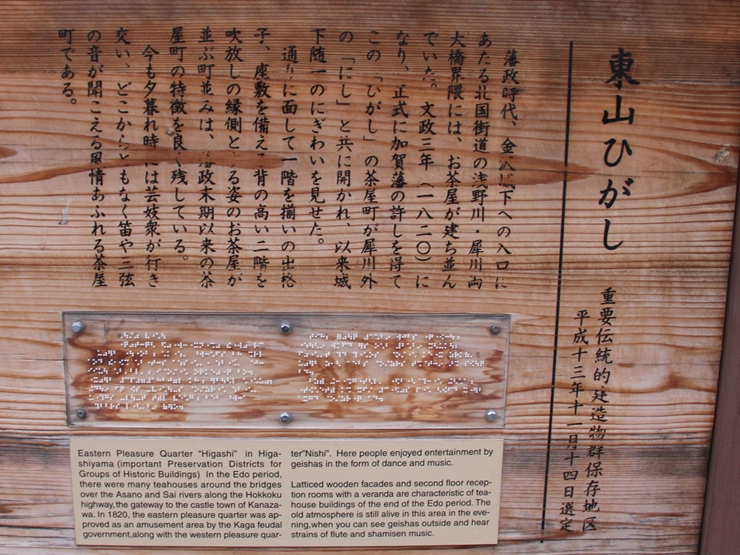 東山ひがし
重要伝統的建造物群保存地区
平成十三年十一月十四日選定
藩政時代、金沢城下への入口に
あたる北国街道の浅野川・犀川両
大橋界隈には、お茶屋が建ち並ん
でいた。文政三年(一八二〇)に
なり、正式に加賀藩の許しを得て
この「ひがし」の茶屋町が犀川外
の「にし」と共に開かれ、以来城
下随一のにぎわいを見せた。
通りに面して一階を揃いの出格
子、座敷を備えた背の高い二階を
吹放しの縁側とする姿のお茶屋が
並ぶ町並みは、藩政末期以来の茶
屋町の特徴を良く残している。
今も夕暮れ時には芸妓衆が行き
交い、どこからともなく笛や三弦
の音が聞こえる風情あふれる茶屋
町である。
Eastern Pleasure Quarter "Higashi" in Higa-
shiyama (important Preservation Districts for
Groups of Historic Buildings) In the Edo period,
there were many teahouses around the bridges
over the Asano and Sai rivers along the Hokkoku
highway,the gateway to the castle town of Kanaza-
wa. In 1820, the eastern pleasure quarter was ap-
proved as an amusement area by the Kaga feudal
government,along with the western pleasure quar-
ter"Nishi". Here people enjoyed entertainment by
geishas in the form of dance and music.
Latticed wooden facades and second floor recep-
tion rooms with a veranda are characteristic of tea-
house buildings of the end of the Edo period. The
old atmosphere is still alive in this area in the eve-
ning,when you can see geishas outside and hear
strains of flute and shamisen music.